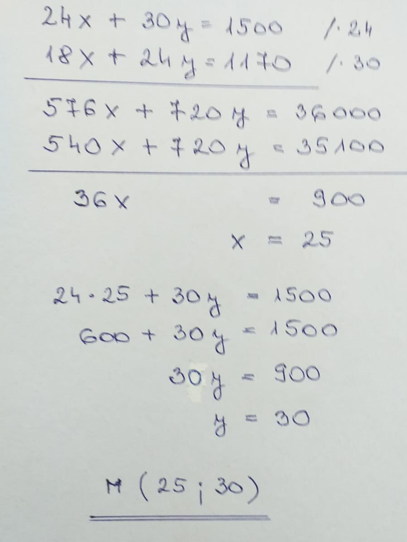 24x + 30y = 1500 /· 24
18x + 24y = 1170 /· 30
576x + 720y = 36000
540x + 720y = 35100
36x = 900
x = 25
24·25 + 30y = 1500
600 + 30y = 1500
30y = 900
y = 30
M (25 ; 30)